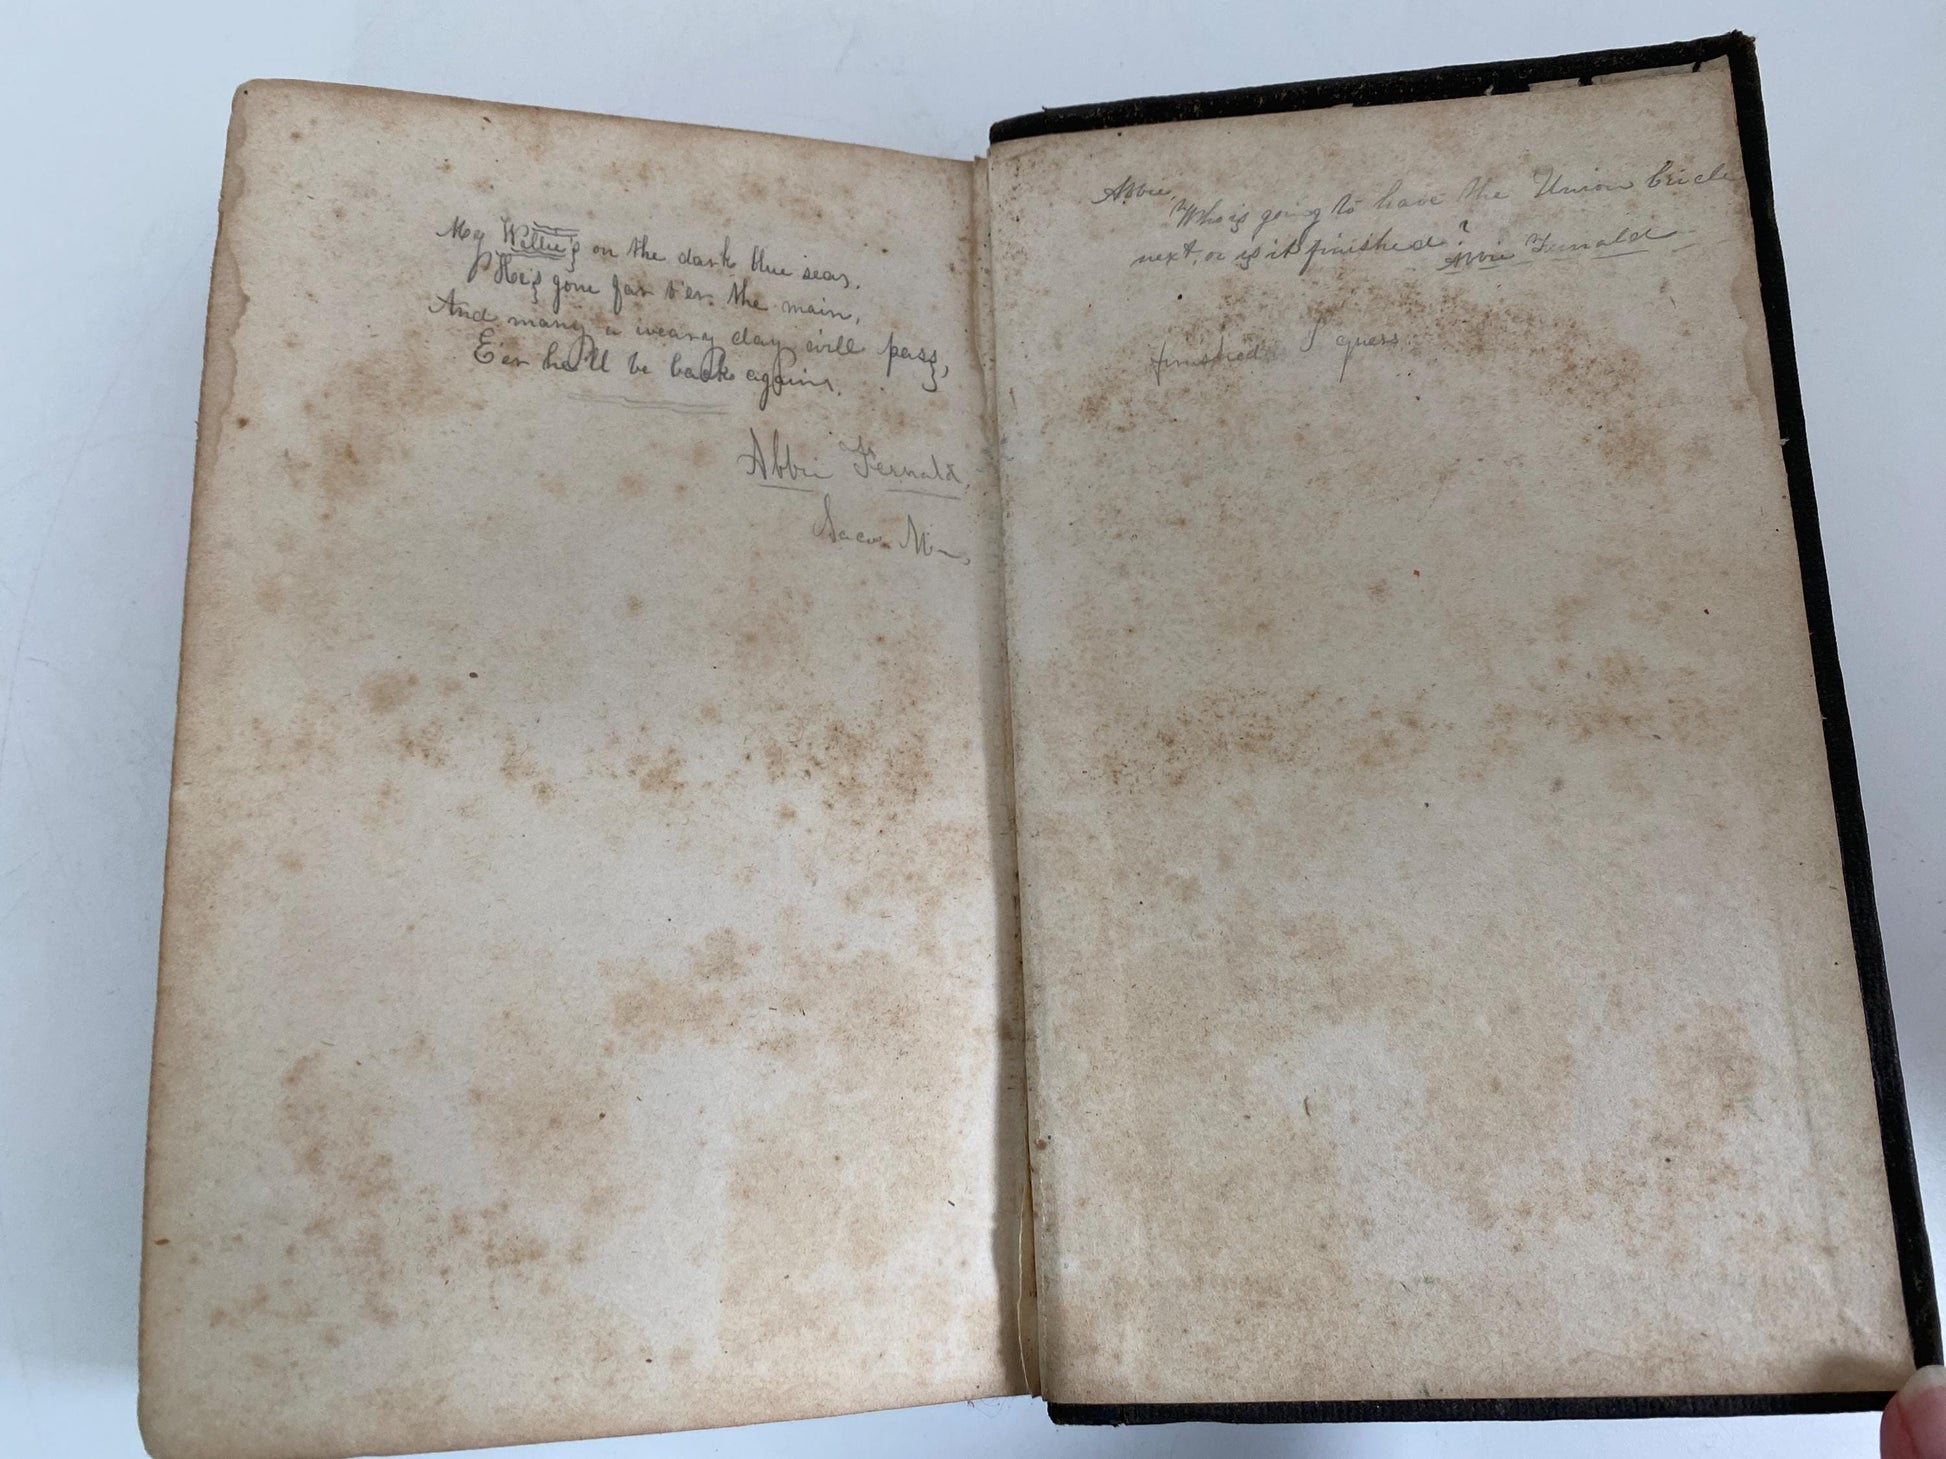 My Willie's on the dark blue seas,
He's gone far o'er the main,
And many a weary day will pass,
E'er he'll be back again.
Abbie Fernald,
Saco. Me,
Abbie,
Who is going to have the Union
next, or is it finished?
Abbie Fernald
finished I guess